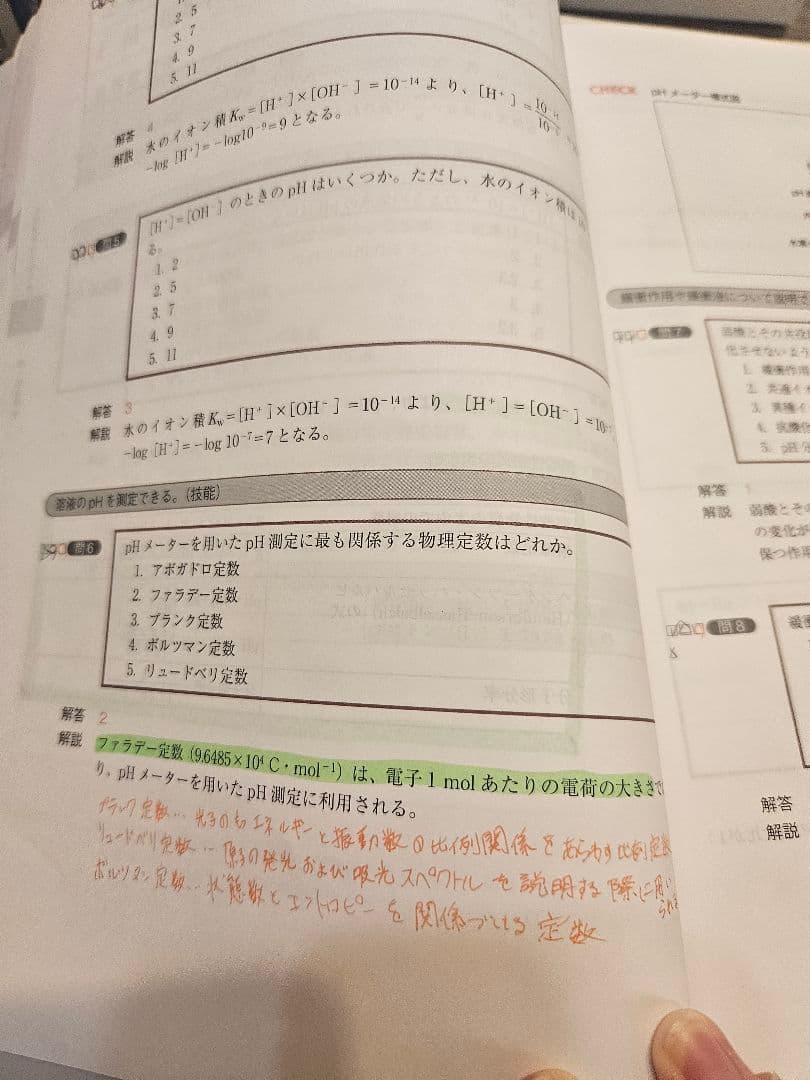 2. 5
3. 7
4. 9
5. 11
解答 4
解説 水のイオン積Kw=[H⁺]×[OH⁻]=10⁻¹⁴より、[H⁺]=
-log [H⁺]=-log10⁻⁹=9となる。
問5 [H⁺]=[OH⁻]のときのpHはいくつか。ただし、水のイオン積は
る。
1. 2
2. 5
3. 7
4. 9
5. 11
解答 3
解説 水のイオン積Kw=[H⁺]×[OH⁻]=10⁻¹⁴より、[H⁺]=[OH⁻]=10⁻
-log [H⁺]=-log 10⁻⁷=7となる。
溶液のpHを測定できる。(技能)
問6 pHメーターを用いたpH測定に最も関係する物理定数はどれか。
1. アボガドロ定数
2. ファラデー定数
3. プランク定数
4. ボルツマン定数
5. リュードベリ定数
解答 2
解説 ファラデー定数(9.6485×10⁴ C・mol⁻¹)は、電子1 molあたりの電荷の大きさで
り、pHメーターを用いたpH測定に利用される。
プランク定数…光子のもつエネルギーと振動数の比例関係をあらわす比例定数
リュードベリ定数…原子の発光および吸光スペクトルを説明する際に用い
られる
ボルツマン定数…状態数とエントロピーを関係づける定数
CHECK pHメーター
緩衝作用や緩衝液について説明で
問7 弱酸とその共役
化させないよう
1. 緩衝作用
2. 共通イ
3. 異種イ
4. 抗酸化
5. pH
解答 1
解説 弱酸とその
の変化が
保つ作用
問8 緩衝
解答
解説